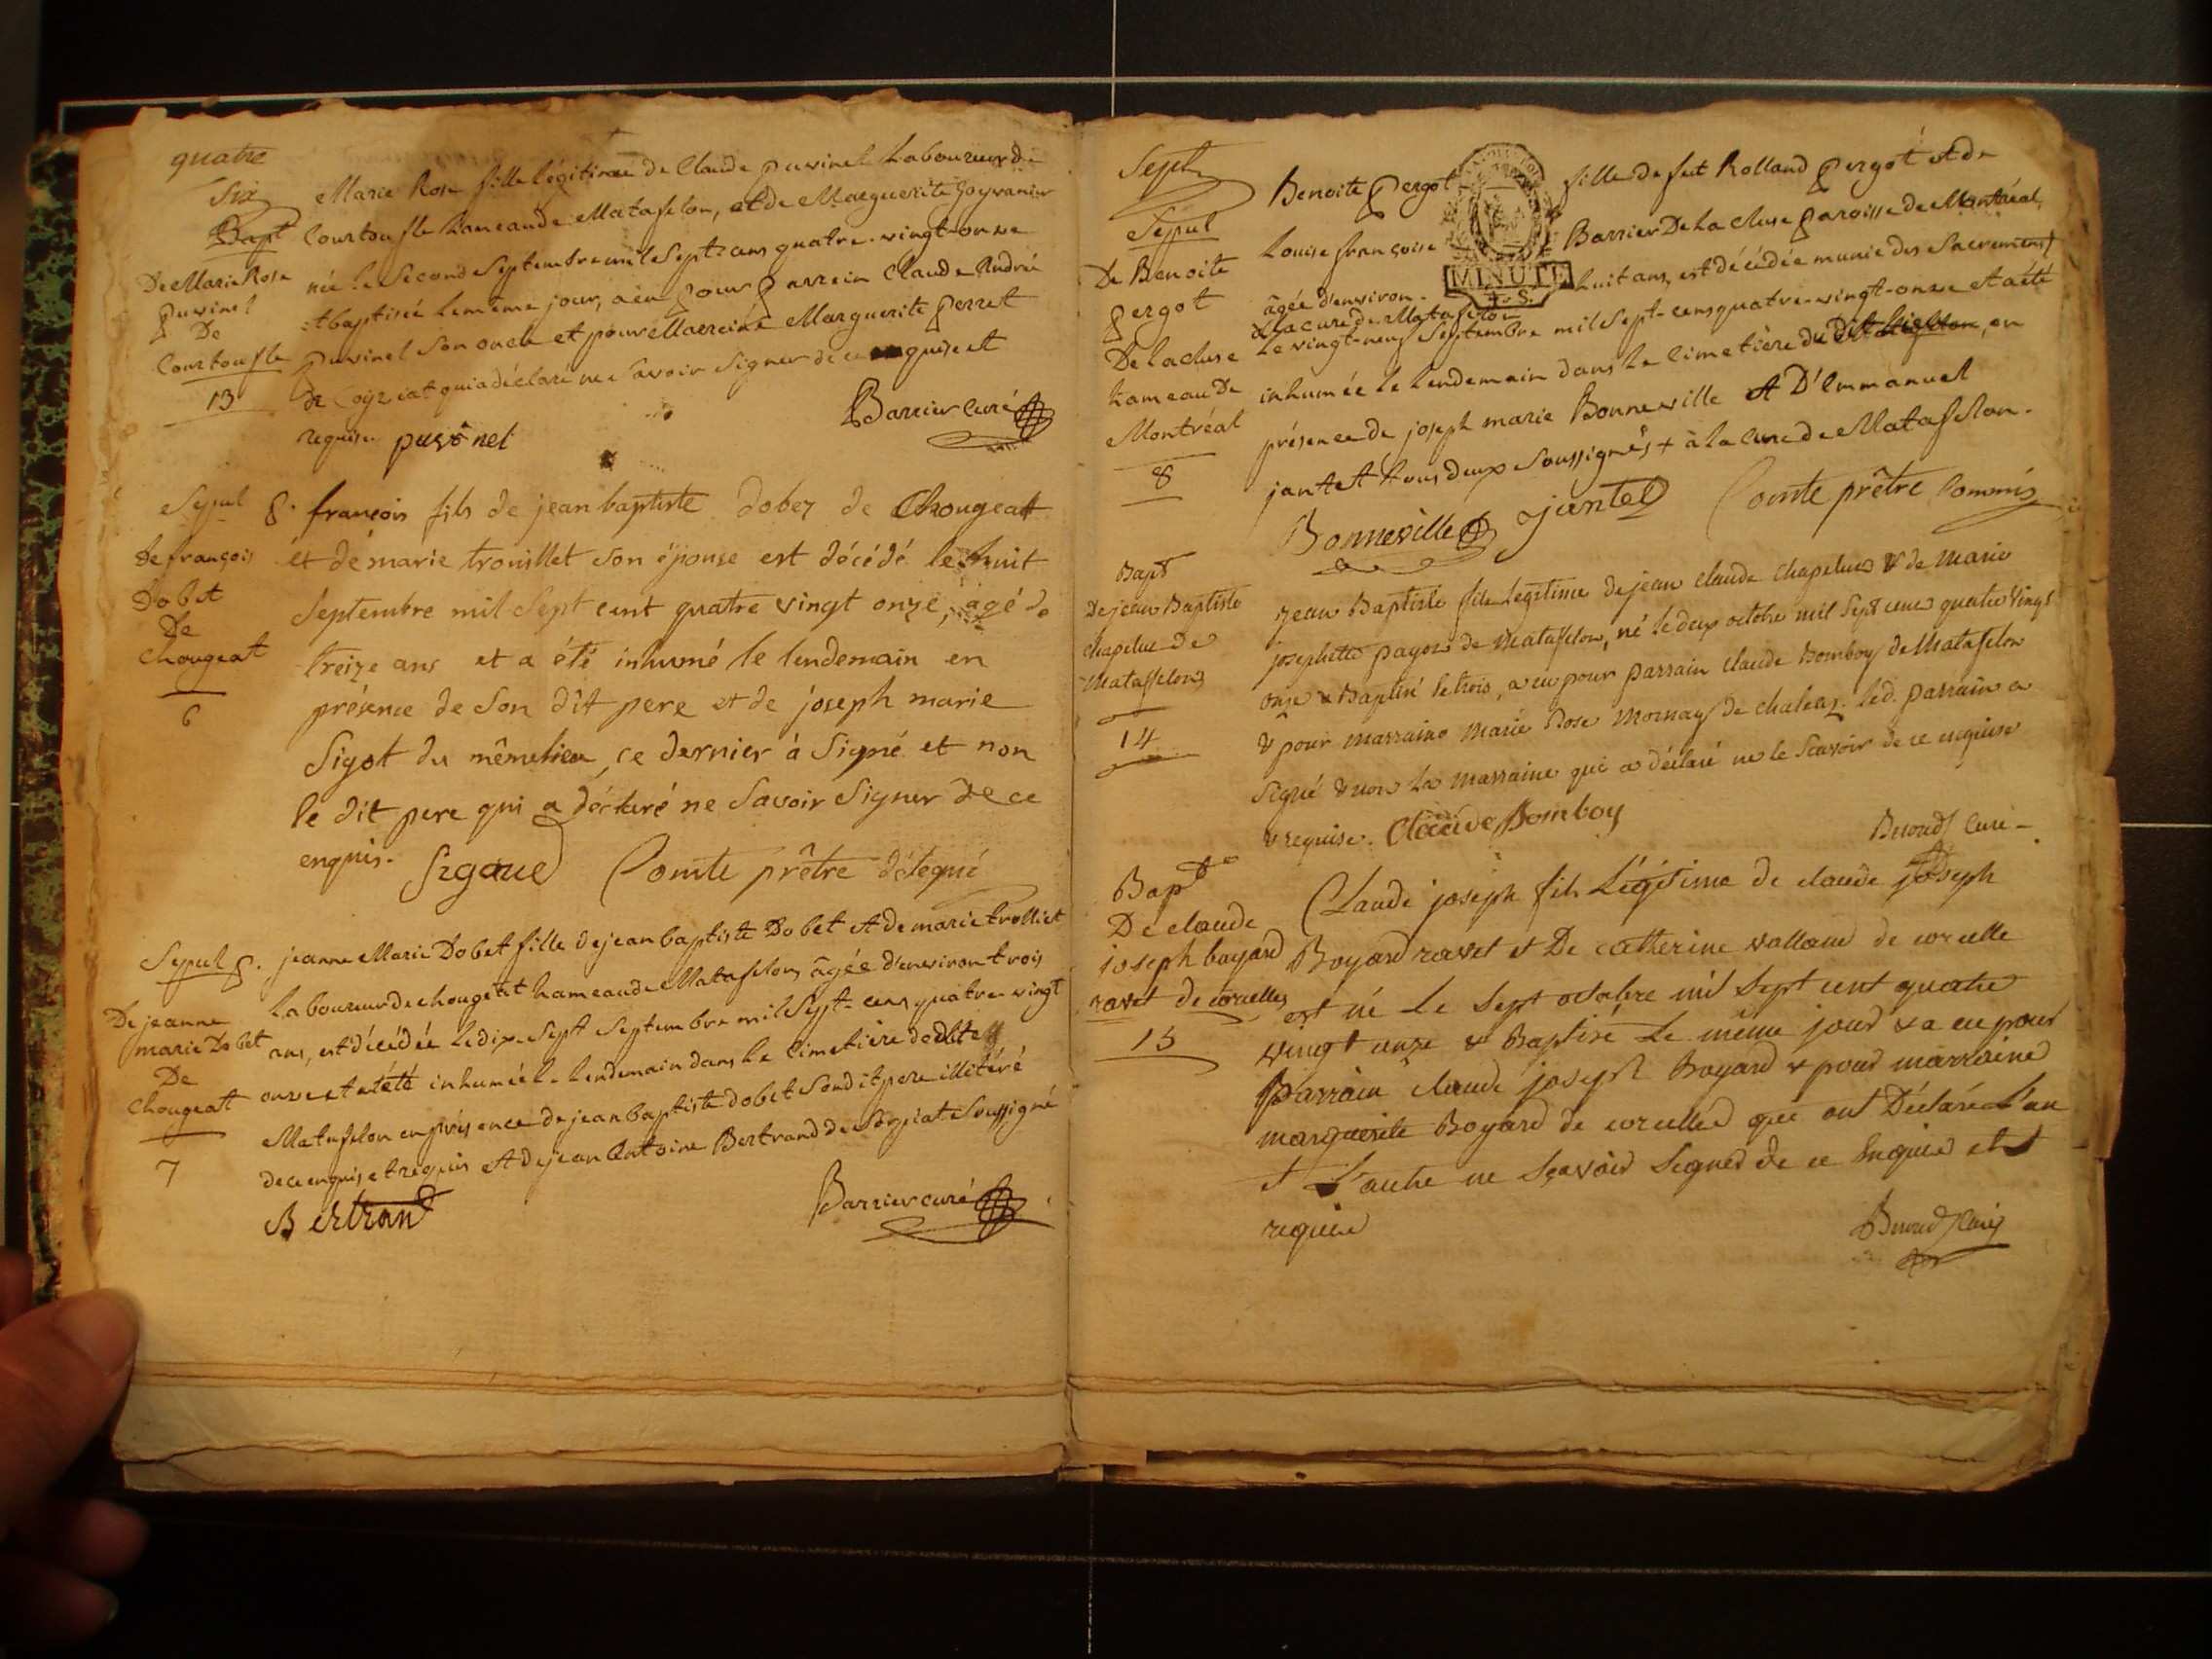 quatre
Six
Bapt
De Marie Rose
puvinel
De
Courtoufle
13
Marie Rose fille légitime de Claude puvinel Laboureur de
Courtoufle hameau de Matafelon, et de Marguerite
née le Second Septembre mil Sept-cens quatre-vingt-onze
et baptisée le même jour, a eu pour parrein Claude André
puvinel Son oncle et pour Marreine Marguerite perret
de Coiziat qui a déclaré ne Savoir Signer de ce enquise et
requise. puvinel
Barrier curé
Sepul p.
De françois
Dobet
De
Chougeat
6
françois fils de jean baptiste dobez de Chougeat
et de marie trouillet son épouse est décédé le huit
Septembre mil Sept cent quatre vingt onze, agé de
treize ans et a été inhumé le lendemain en
présence de Son dit pere et de joseph marie
Sigot du même lieu, ce dernier à Signé et non
le dit pere qui a déclaré ne Savoir Signer de ce
enquis. Sigoud Comte prêtre délegué
Sepul p.
De jeanne
marie Dobet
De
Chougeat
7
jeanne Marie Dobet fille de jean baptiste Dobet et de marie trolliet
Laboureur de chougetet hameau de Matafelon, âgée d'environ trois
ans, est décédée le dix-Sept Septembre mil Sept-cens quatre-vingt
onze et a été inhumée le lendemain dans le Cimetière de
Matafelon en présence de jean baptiste dobet Son dit pere illitéré
de ce enquis et requis et de jean Antoine Bertrand de Soussigné
Bertrand
Barrier curé
Sept
Sepul
De Benoite
pergot
De la cluse
hameau De
Montréal
8
MINUTE
4. S.
Benoite pergot fille de feu Rolland pergot et de
Louise françoise Barrier De la cluse paroisse de Montréal,
âgée d'environ huit ans, est décédée munie des Sacremens
à la cure de Matafelon
Le vingt-neuf Septembre mil Sept-cens quatre-vingt-onze et a été
inhumée le lendemain dans le Cimetière du dit, en
présence de joseph marie Bonneville et D'Emmanuel
jantet tous deux Soussignés + à la cure de Matafelon.
Bonneville jantet Comte prêtre Commis
Bapt
De jean Baptiste
chapelue de
Matafelon
14
jean Baptiste fils Legitime de jean claude chapelue & de Marie
josephette payor de Matafelon, né le deux octobre mil Sept cent quatre vingt
onze & Baptisé le trois, a eu pour parrain claude Bomboy de Matafelon
& pour marraine Marie Rose Mornay de chaleaz. led. parrain a
Signé & non La marraine qui a déclaré ne le Scavoir de ce enquise
& requise. Claude Bomboy
curé
Bapt
De claude
joseph boyard
ravet de corcelles
15
Claude joseph fils Légitime de claude joseph
Boyard ravet et De catherine valland de corcelle
est né Le Sept octobre mil Sept cent quatre
vingt onze & Baptisé Le même jour & a eu pour
Parrain claude joseph Boyard & pour marraine
marguerite Boyard de corcelle qui ont Déclaré L'un
et L'autre ne Sçavoir Signer de ce Enquis et
requis
curé